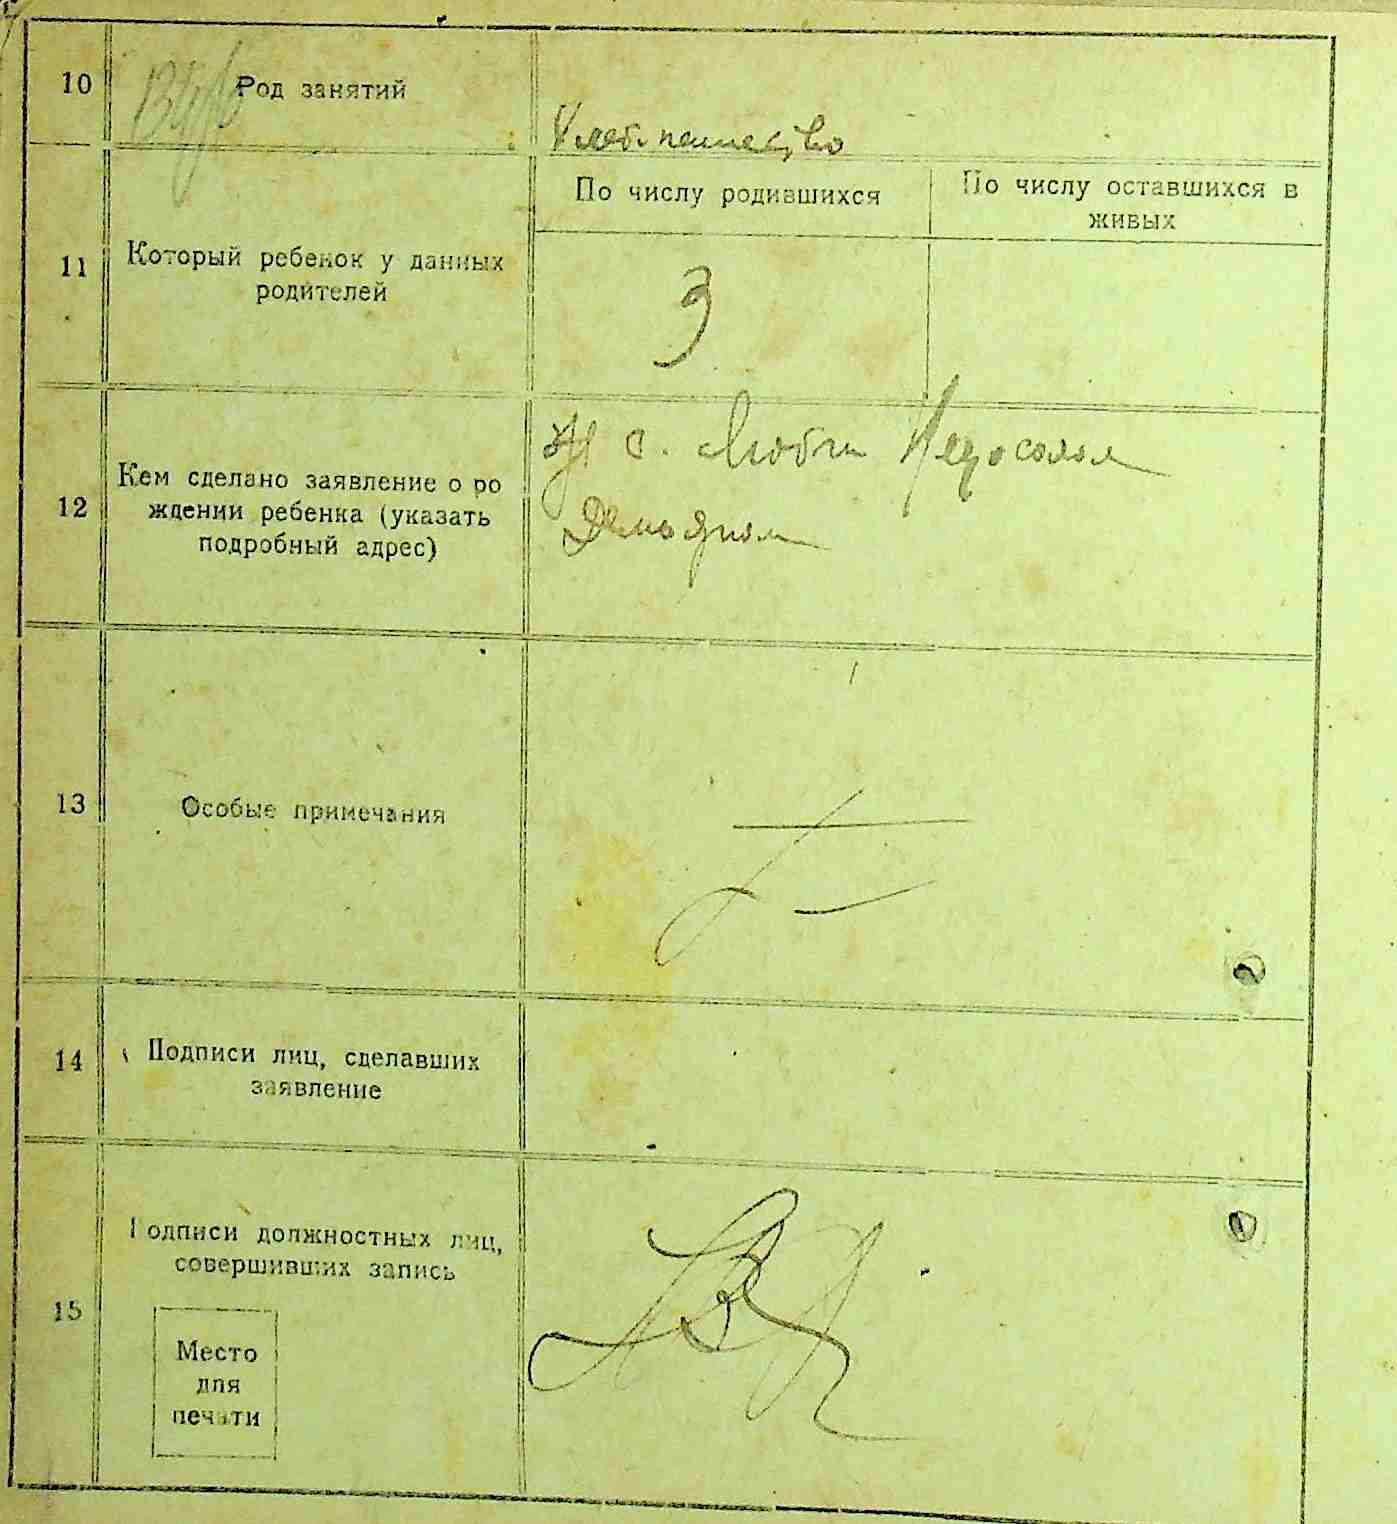 10
Род занятий
Хлебопашество
По числу родившихся
По числу оставшихся в
живых
11
Который ребенок у данных
родителей
3
12
Кем сделано заявление о ро
ждении ребенка (указать
подробный адрес)
с. Любчи
Демьяном
13
Особые примечания
14
Подписи лиц, сделавших
заявление
15
Подписи должностных лиц,
совершивших запись
Место
для
печати